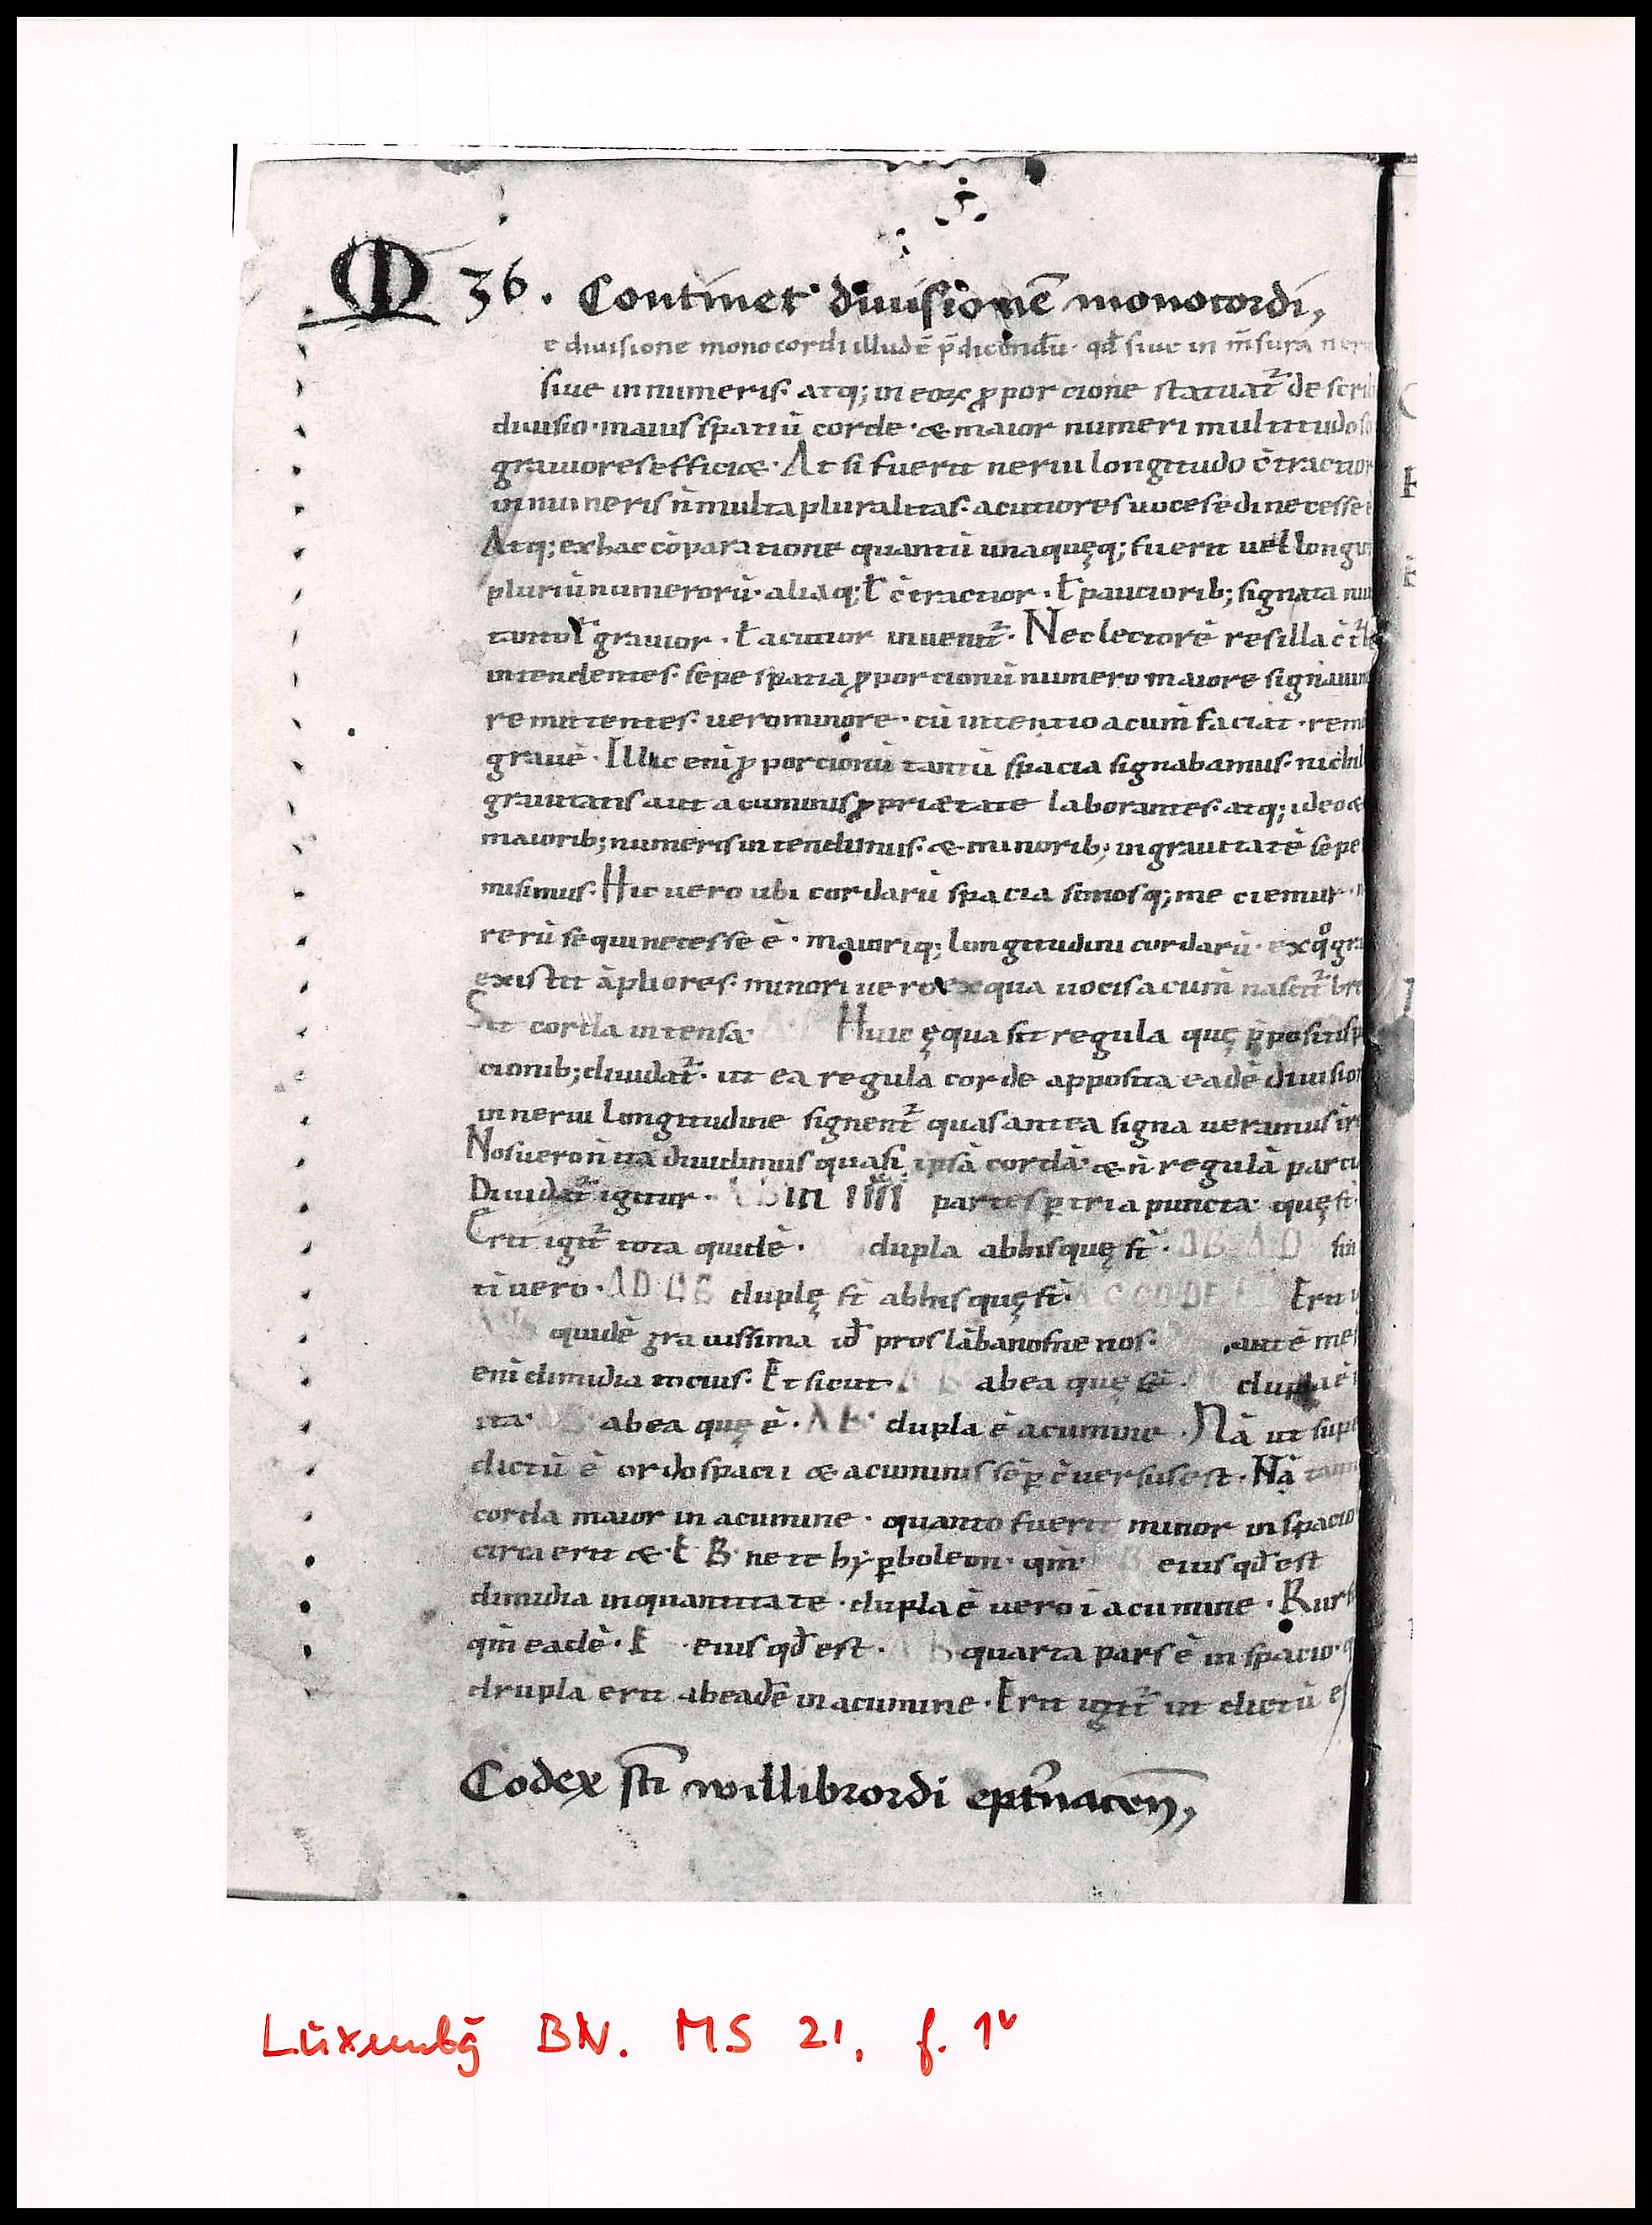 M 36. Continet diuisionē monocordi,
e diuisione monocordi illud ē p̄dicendū· qđ siue in m̄sura ner
siue in numeris· atq; in eoꝝ ꝓporcione statuat᷑ describ
diuisio· maius spatiū corde· & maior numeri multitudo so
grauiores efficit· At si fuerit nerui longitudo c̄tractior
in numeris n̄ multa pluralitas· acutiores uoces edi necesse e
Atq; ex hac cōparatione quantū unaquęq; fuerit uel longi
pluriū numerorū· aliaq; ł c̄tractior· ł pauciorib; signata nu
tanto ł grauior· ł acutior inuenit᷑· Nec lectorē res illa c̄t
intendentes· sepe spatia ꝓporcionū numero maiore signauim
remittentes· uero minore· cū intentio acum̄ faciat· remi
grauē· Illic eni ꝓporcionū tantū spacia signabamus· nichil
grauitatis aut acuminis ꝓprietate laborantes· atq; ideo &
maiorib; numeris intendimus· & minorib; in grauitatē sepe
misimus· Hic uero ubi cordarū spacia sonosq; meciemur·
rerū sequi necesse ē· maioriq; longitudini cordarū· ex qͦ gra
existit āpliores· minori uero ex qua uocis acum̄ nascit᷑ bre
Sit corda intensa· A·B Huic ęqua sit regula quę ꝓpositis p
cionib; diuidat᷑· ut ea regula corde apposita eadē diuision
in nerui longitudine signent᷑ quas antea signaueramus in
Nos uero n̄ ita diuidimus quasi ipsā cordā· & n̄ regulā parci
Diuidat᷑ igitur· AB in IIII partes p̱ tria puncta· quę st̄·
Erit igit᷑ tota quidē· dupla ab his quę st̄· DB· AD sin
ti uero· AD DB duplę st̄ ab his quę st̄· AC CD DE EB Erit
quidē grauissima iđ proslābanomenos· autē me
eni dimidia totius· Et sicut· AB ab ea quę dupla ē
ita· ab ea quę ē· AB· dupla ē acumine· Nā ut sup
dictū ē ordo spacii & acuminis sēp̱ c̄uersus est· Nā tan
corda maior in acumine· quanto fuerit minor in spacio
circa erit & E B· nete hyp̱boleon· qm̄· B eius qđ est
dimidia in quantitate· dupla ē uero ī acumine· Rurs
qm̄ eadē· E eius qđ est· AB quarta pars ē in spacio· q
drupla erit ab eadē in acumine· Erit igit᷑ ut dictū e
Codex sc̄i willibrordi ept̄nacen̄,
Luxembg̃ BN. MS 21, f. 1ᵛ